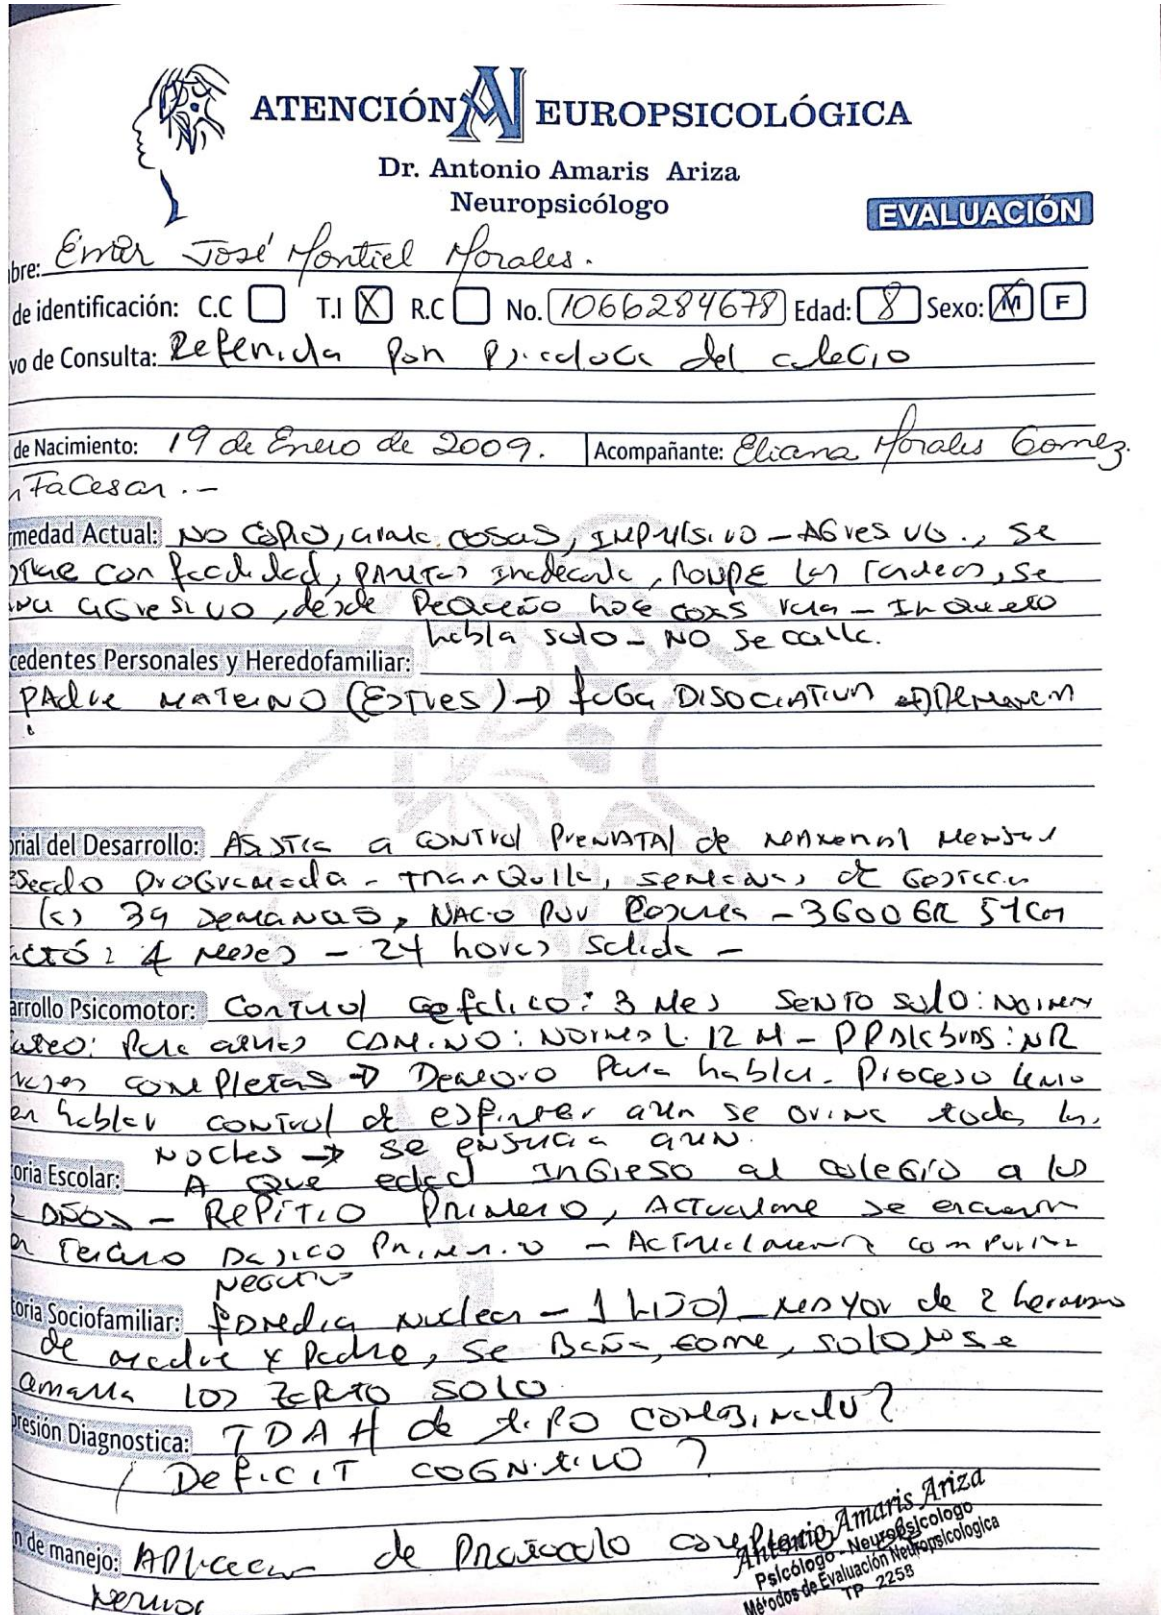 ATENCIÓN NEUROPSICOLÓGICA
Dr. Antonio Amaris Ariza
Neuropsicólogo
EVALUACIÓN
bre: Emer José Montiel Morales.
de identificación: C.C T.I X R.C No. 1066284678 Edad: 8 Sexo: M F
vo de Consulta: Referida por psicologa del colegio
de Nacimiento: 19 de Enero de 2009. Acompañante: Eliana Morales Gomez.
nfaCesar.-
rmedad Actual: NO copio, cosas, IMPULSIVO - AGresivo., se
con facilidad, ROMPE las se
agresivo, desde Pequeño hace cosas - Inquieto
habla solo - NO se calla.
cedentes Personales y Heredofamiliar:
PAdre MATERNO (ESTRES) → fuga DISOCIATIVA
orial del Desarrollo: Asistia a CONTrol PreNATAl de Mensual
programada - tranquila, semanas de
39 semanas, NACIO por - 3600 GR 51 Cm
4 Meses - 24 horas salida -
arrollo Psicomotor: Control cefalico: 3 Mes SENTO solo:
CAMINO: Normal 12 M - PPalabras: NR
completas → Demoro Para hablar. Proceso lento
en hablar control de esfinter aun se orina todas las
Noches → se ensucia aun.
toria Escolar: A que edad INGreso al colegio a los
AÑOS - REPITIO Primero, Actualmente se encuentra
Tercero Basico Primario - Actualmente
toria Sociofamiliar: familia Nuclear - 1 hijo) mayor de 2 hermanos
de madre y Padre, se Baña, come, solo, no se
amarra los zapato solo
presión Diagnostica: TDAH de tipo combinado?
/ DefiCIT COGNitivo ?
n de manejo: Aplicacion de Protocolo
Antonio Amaris Ariza
Psicólogo - Neuropsicologo
Métodos de Evaluación Neuropsicologica
TP 2258